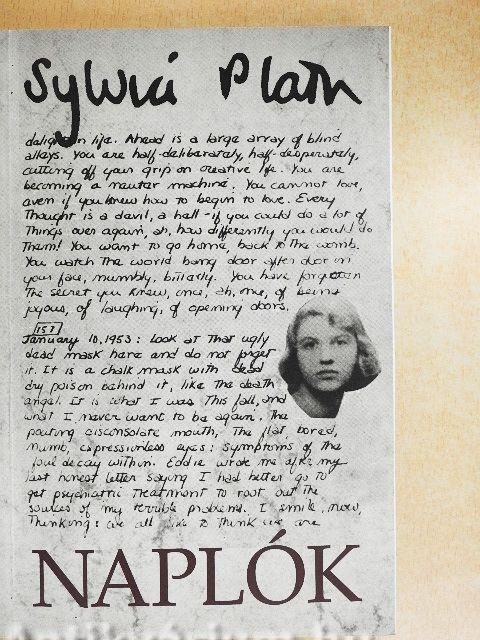 Sylvia Plath
delight in life. Ahead is a large array of blind
alleys. You are half-deliberately, half-desperately,
cutting off your grip on creative life. You are
becoming a neuter machine. You cannot love,
even if you knew how to begin to love. Every
Thought is a devil, a hell - if you could do a lot of
Things over again, ah, how differently you would do
Them! You want to go home, back to The womb.
You watch The world bang door after door in
your face, numbly, bitterly. You have forgotten
The secret you knew, once, ah, once, of being
joyous, of laughing, of opening doors.
157
January 10, 1953: Look at That ugly
dead mask here and do not forget
it. It is a chalk mask with dead
dry poison behind it, like The death
angel. It is what I was This fall, and
what I never want to be again. The
pouting disconsolate mouth, The flat, bored,
numb, expressionless eyes: symptoms of The
foul decay within. Eddie wrote me after my
last honest letter saying I had better go to
get psychiatric Treatment to root out The
sources of my terrible problems. I smile, now,
Thinking: we all like to Think we are
NAPLÓK